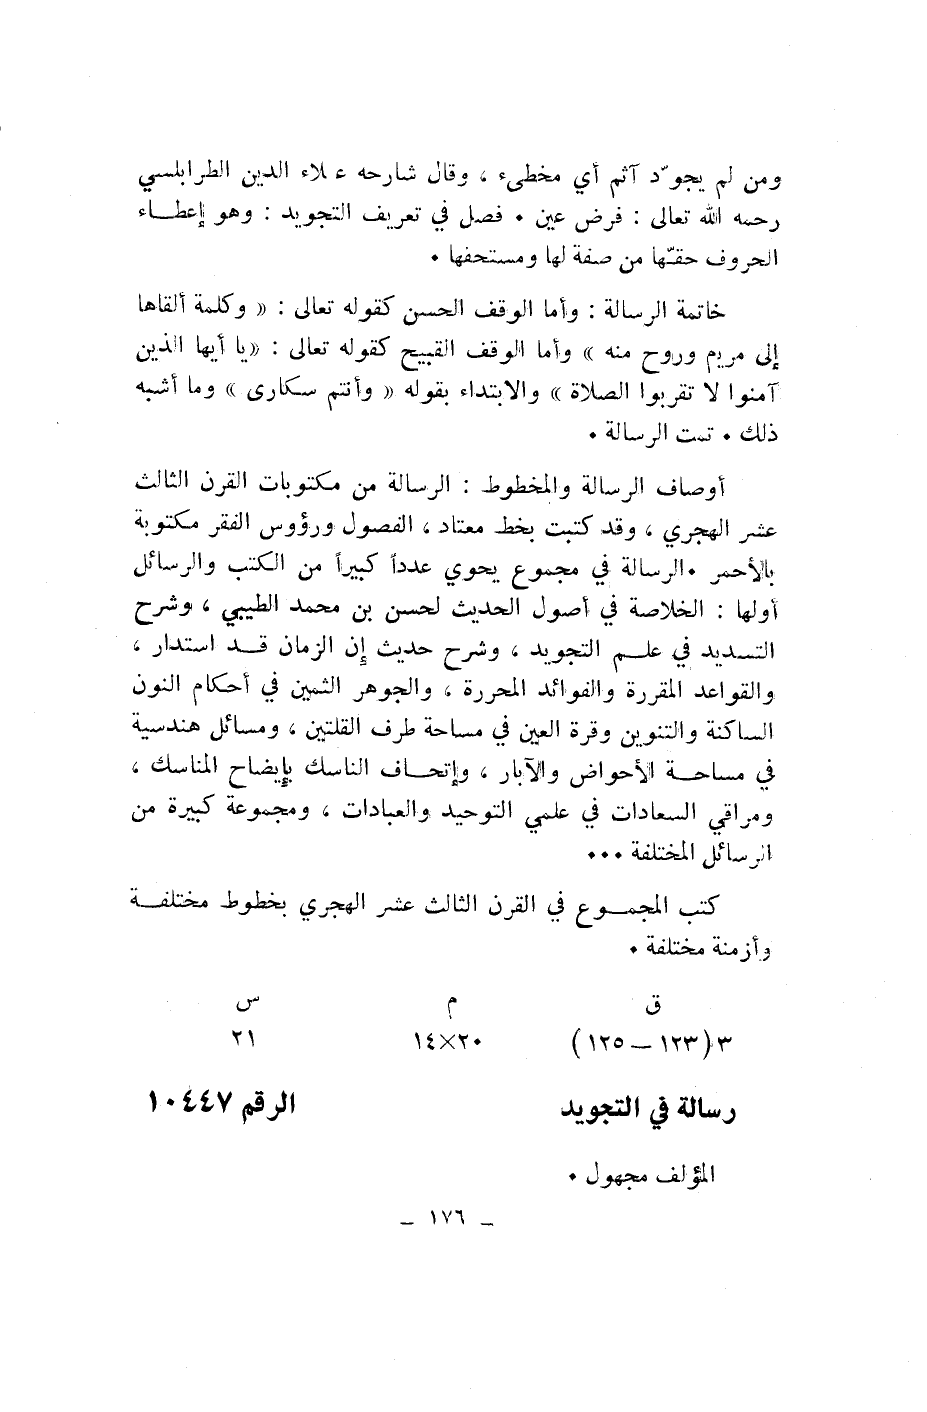 ومن لم يجوّد آثم أي مخطىء ، وقال شارحه علاء الدين الطرابلسي
رحمه الله تعالى : فرض عين . فصل في تعريف التجويد : وهو إعطاء
الحروف حقّها من صفة لها ومستحفها .
خاتمة الرسالة : وأما الوقف الحسن كقوله تعالى : « وكلمة ألقاها
إلى مريم وروح منه » وأما الوقف القبيح كقوله تعالى : «يا أيها الذين
آمنوا لا تقربوا الصلاة » والابتداء بقوله « وأنتم سكارى » وما أشبه
ذلك . تمت الرسالة .
أوصاف الرسالة والمخطوط : الرسالة من مكتوبات القرن الثالث
عشر الهجري ، وقد كتبت بخط معتاد ، الفصول ورؤوس الفقر مكتوبة
بالأحمر .الرسالة في مجموع يحوي عدداً كبيراً من الكتب والرسائل
أولها : الخلاصة في أصول الحديث لحسن بن محمد الطيبي ، وشرح
التسديد في علم التجويد ، وشرح حديث إن الزمان قد استدار ،
والقواعد المقررة والفوائد المحررة ، والجوهر الثمين في أحكام النون
الساكنة والتنوين وقرة العين في مساحة طرف القلتين ، ومسائل هندسية
في مساحة الأحواض والآبار ، وإتحاف الناسك بإيضاح المناسك ،
ومراقي السعادات في علمي التوحيد والعبادات ، ومجموعة كبيرة من
الرسائل المختلفة ...
كتب المجموع في القرن الثالث عشر الهجري بخطوط مختلفة
وأزمنة مختلفة .
ق م س
٣ (١٢٣ – ١٢٥) ٢٠×١٤ ٢١
رسالة في التجويد الرقم ١٠٤٤٧
المؤلف مجهول .
– ١٧٦ –